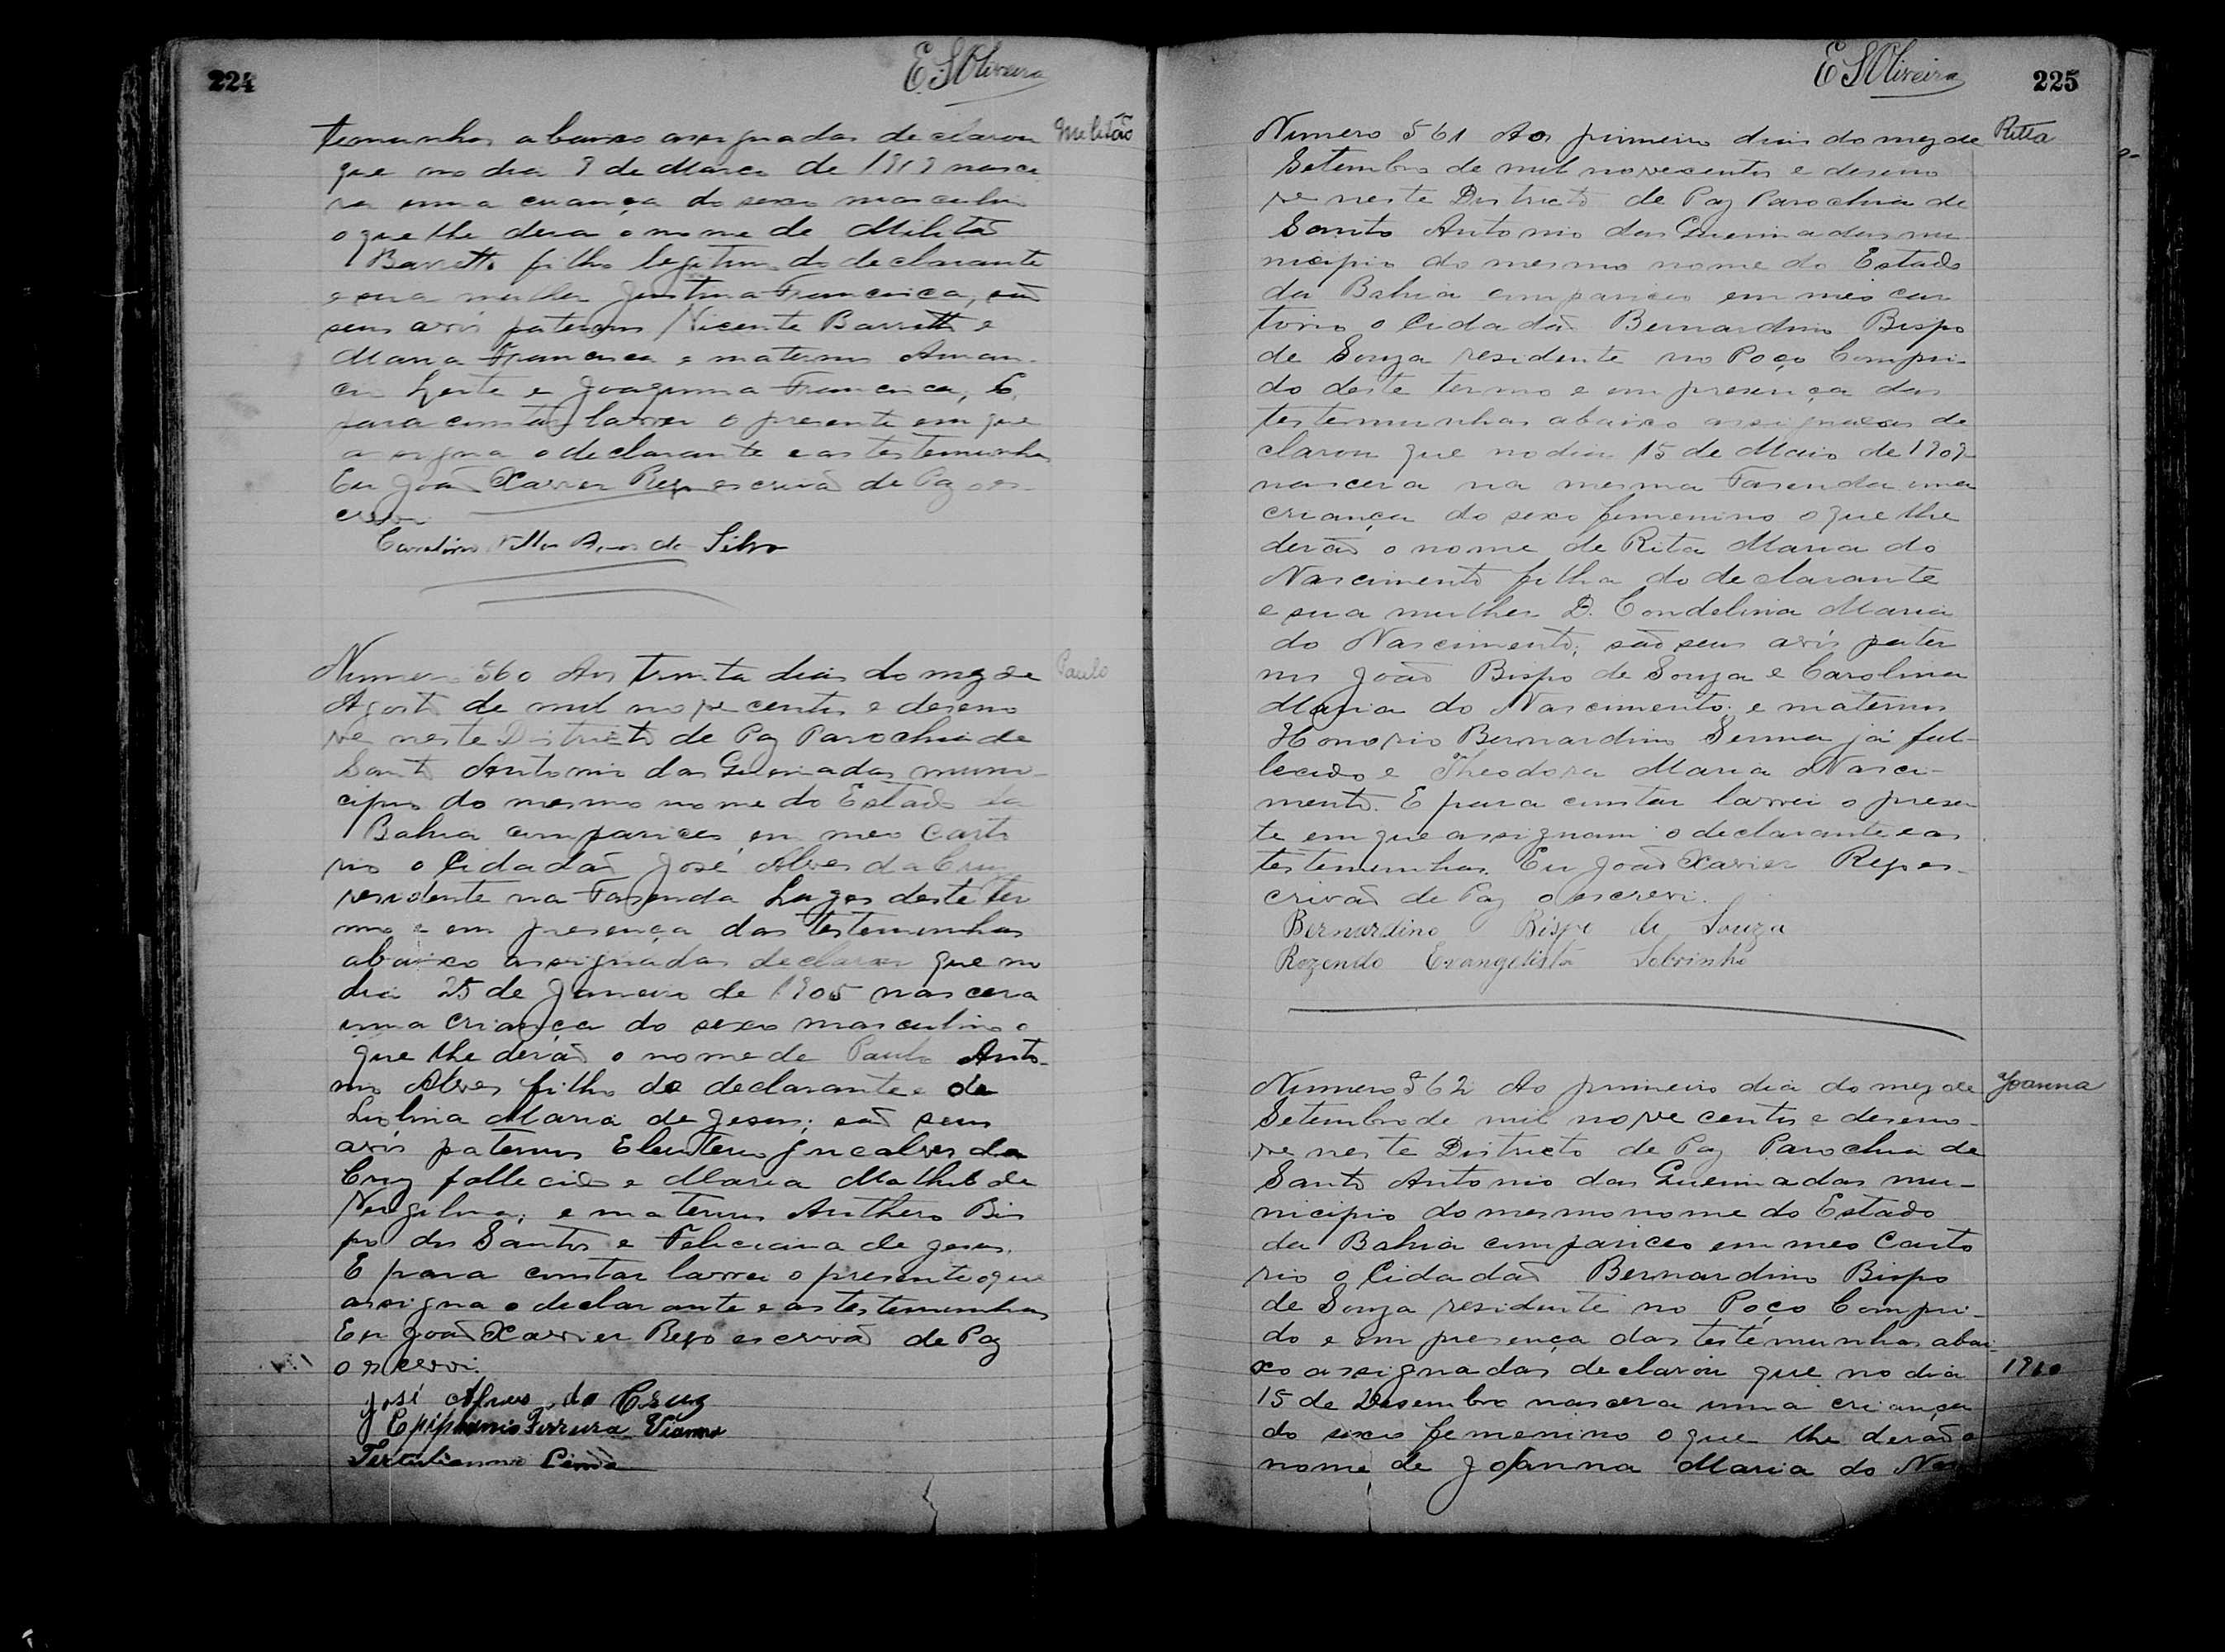 224
E. S. Oliveira
temunhas abaixo assignadas declarou
Militão
que no dia 8 de Março de 1919 nasce
ra uma creança do sexo masculino
o que lhe dera o nome de Militão
Barretto filho legitimo do declarante
e sua mulher Justina Francisca, são
seus avós paternos Vicente Barretto e
Maria Francisca e maternos Aman-
cio Leite e Joaquina Francisca, E,
para constar lavrei o presente em que
assigna o declarante e as testemunhas
Eu João Xavier Rego escrivão de Paz o es-
crevi.
da Silva
Numero 560 Aos trinta dias do mez de
Paulo
Agosto de mil novecentos e deseno
ve neste Districto de Paz Parochia de
Santo Antonio das Queimadas muni-
cipio do mesmo nome do Estado da
Bahia compareceo em meo Carto
rio o Cidadão José Alves da Cruz
residente na Fasenda Lages deste ter
mo e em presença das testemunhas
abaixo assignadas declarou que no
dia 25 de Janeiro de 1905 nascera
uma criança do sexo masculino o
que lhe derão o nome de Paulo Anto-
nio Alves filho do declarante e de
Maria de Jesus; são seus
avós paternos Eleuterio Gncalves da
Cruz fallecido e Maria Mathilde
Virgilina; e maternos Anthero Bis
po dos Santos e Feliciana de Jesus.
E para constar lavrei o presente o que
assigna o declarante e as testemunhas
Eu João Xavier Rego escrivão de Paz
o escrevi.
José Alves da Cruz
Epiphanio Ferreira Vianna
Tertuliano Lima
E S Oliveira
225
Numero 561 Aos primeiro dias do mez de
Ritta
Setembro de mil novecentos e deseno
ve neste Districto de Paz Parochia de
Santo Antonio das Queimadas mu
nicipio do mesmo nome do Estado
da Bahia compareceo em meo car
torio o Cidadão Bernardino Bispo
de Souza residente no Poço Compri-
do deste termo e em presença das
testemunhas abaixo assignadas de
clarou que no dia 15 de Maio de 1909
nascera na mesma Fasenda uma
criança do sexo femenino o que lhe
derão o nome de Rita Maria do
Nascimento filha do declarante
e sua mulher D. Condelina Maria
do Nascimento; são seus avós pater
nos João Bispo de Souza e Carolina
Maria do Nascimento; e maternos
Honorio Bernardino Senna já fal-
lecido e Theodora Maria Nasci-
mento. E para constar lavrei o presen
te em que assignam o declarante e as
testemunhas. Eu João Xavier Rego es-
crivão de Paz o escrevi.
Bernardino Bispo de Souza
Rozendo Evangelista Sobrinho
Numero 562 Ao primeiro dia do mez de
Joanna
Setembro de mil novecentos e deseno-
ve neste Districto de Paz Parochia de
Santo Antonio das Queimadas mu-
nicipio do mesmo nome do Estado
da Bahia compareceo em meo Carto
rio o Cidadão Bernardino Bispo
de Souza residente no Poço Compri-
do e em presença das testemunhas abai-
xo assignadas declarou que no dia
1910
15 de Desembro nascera uma criança
do sexo femenino o que lhe derão o
nome de Joanna Maria do Nas